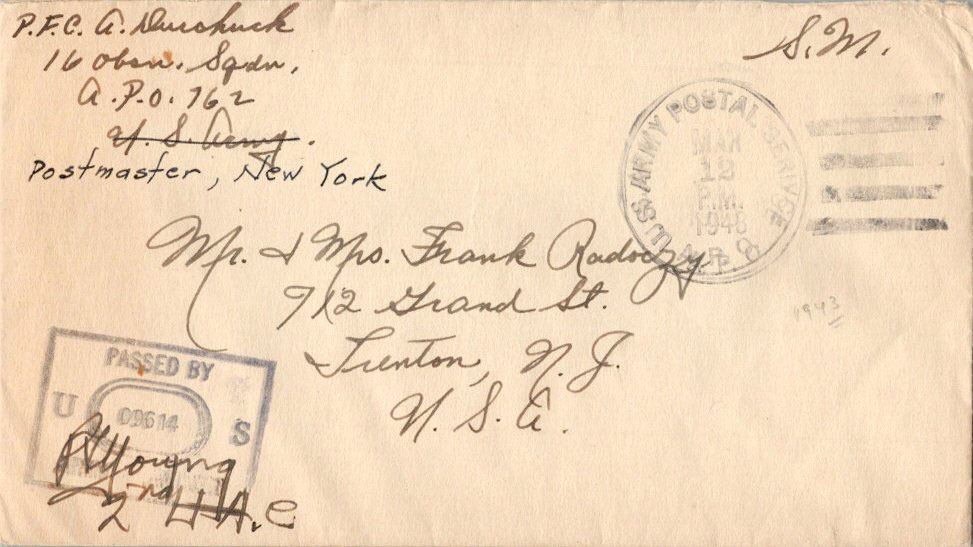 P.F.C. A. Durchuck
16 Obsn. Sqdn.
A.P.O. 762
U. S. Army.
Postmaster, New York
S.M.
U.S. ARMY POSTAL SERVICE
MAR
12
P.M.
1943
A.P.O.
Mr. & Mrs. Frank Radoczy
912 Grand St.
Trenton, N. J.
U. S. A.
1943
PASSED BY
U 09614 S
Young
2nd